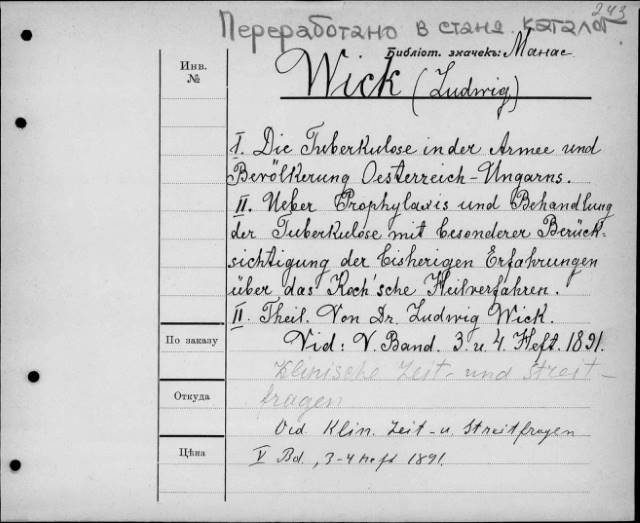 243
Переработано в станд. каталог
Библіот. значекъ: Манас
Инв.
№
Wick (Ludwig)
I. Die Tuberkulose in der Armee und
Bevölkerung Oesterreich-Ungarns.
II. Ueber Prophylaxis und Behandlung
der Tuberkulose mit besonderer Berück-
sichtigung der bisherigen Erfahrungen
über das Koch'sche Heilverfahren.
II. Theil. Von Dr. Ludwig Wick.
По заказу
Vid: V. Band. 3. u. 4. Heft. 1891.
Klinische Zeit- und Streit-
Откуда
fragen
Vid Klin. Zeit- u. Streitfragen
Цѣна
V Bd., 3-4 Heft 1891.